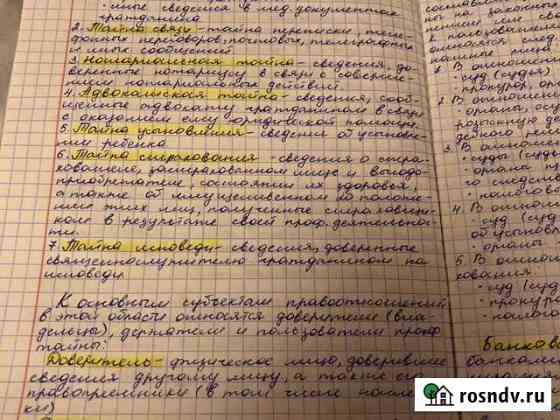 · иные сведения в мед. документах
гражданина
2. Тайна связи - тайна переписки, теле-
фонных переговоров, почтовых, телеграфных
и иных сообщений
3. Нотариальная тайна - сведения, до-
веренные нотариусу в связи с соверше-
нием нотариальных действий.
4. Адвокатская тайна - сведения, сооб-
щённые адвокату гражданином в связи
с оказанием ему юридической помощи.
5. Тайна усыновления - сведения об усынов-
лении ребёнка
6. Тайна страхования - сведения о стра-
хователе, застрахованном лице и выгодо-
приобретателе, состоянии их здоровья,
а также об имущественном их положе-
нии этих лиц, полученные страховщи-
ком в результате своей проф. деятельнос-
ти.
7. Тайна исповеди - сведения, доверенные
священнослужителю гражданином на
исповеди
К основным субъектам правоотношений
в этой области относятся доверители (вла-
дельцы), держатели и пользователи проф.
тайны:
Доверитель - физическое лицо, доверившее
сведения другому лицу, а также его
правопреемники (в том числе наслед-
ки)
на законных
2. пользовател
относятся
1. В отношении
· суд (судья)
· прокурор,
2. В отношении
· органы,
3. В отношении
· суды (
· органы
4. В отношении
· суд (
об усыновл
· органы
5. В отношении
хования
· суд (
· прокур
· налого
Банков
банками
rosndv.ru